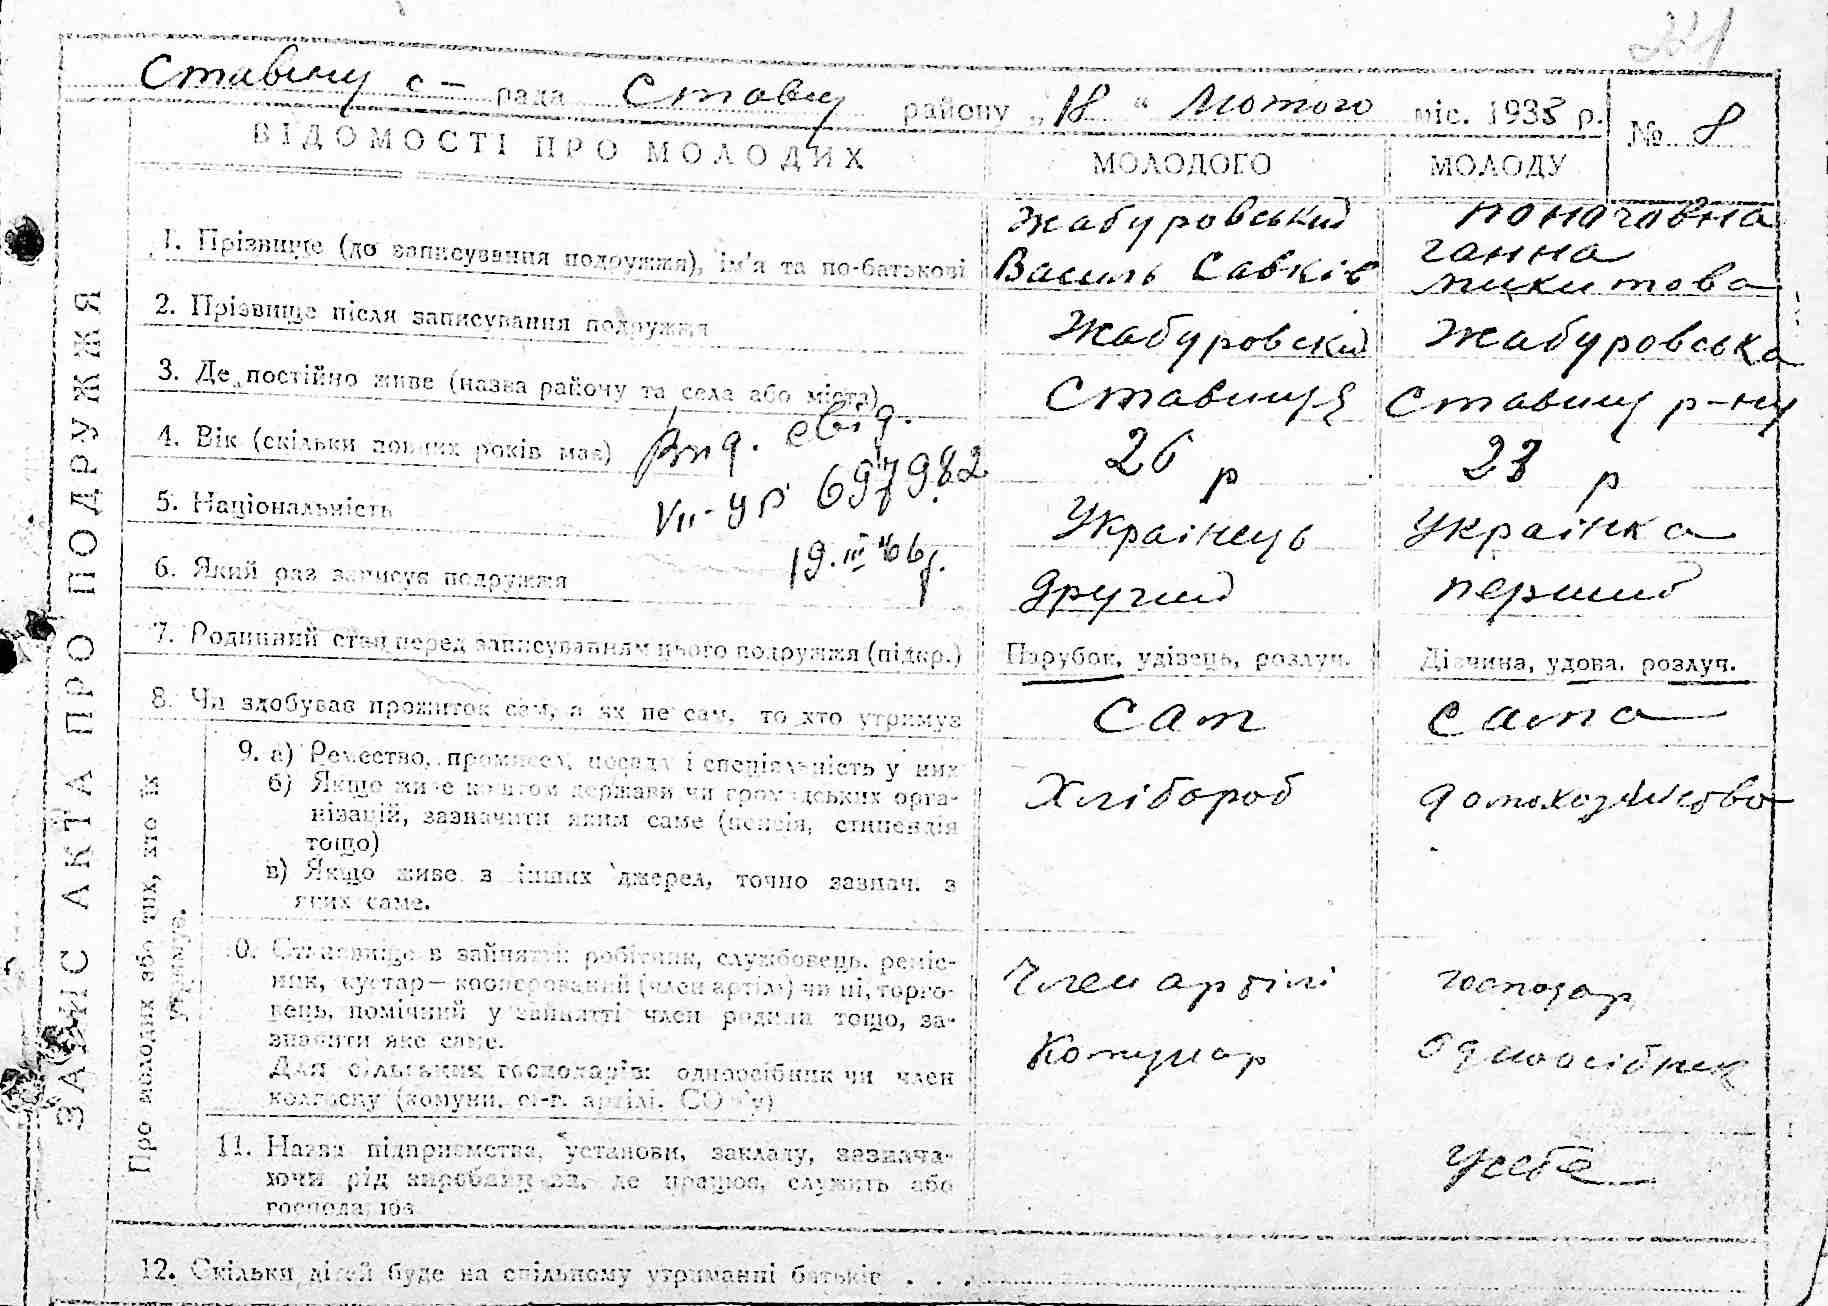 Ставищ с- рада Ставищ району „18“ Лютого міс. 1933 р. № 8
ЗАПИС АКТА ПРО ПОДРУЖЖЯ
ВІДОМОСТІ ПРО МОЛОДИХ МОЛОДОГО МОЛОДУ
1. Прізвище (до записування подружжя), ім'я та по-батькові
Жабуровський
Василь Савків
ганна
микитова
2. Прізвище після записування подружжя Жабуровский Жабуровська
3. Де постійно живе (назва району та села або міста) Ставище Ставищ р-ну
4. Вік (скільки повних років має) 26 р 23 р
Вид. свід.
VII-УР 697982
5. Національність Українець Українка
19.III
6. Який раз записує подружжя другий перший
7. Родинний стан перед записуванням цього подружжя (підкр.) Парубок, удівець, розлуч. Дівчина, удова, розлуч.
8. Чи здобував прожиток сам, а як не сам, то хто утримує сам сама
Про молодих або тих, хто їх утримує.
9. а) Ремество, промисел, посада і спеціяльність у них
б) Якщо живе коштом держави чи громадських орга-
нізацій, зазначити яким саме (пенсія, стипендія
тощо)
в) Якщо живе з інших джерел, точно зазнач. з
яких саме.
Хлібороб домохозяйство
10. Становище в зайнятті: робітник, службовець, реміс-
ник, кустар—кооперований (член артілі) чи ні, торго-
вець, помічний у зайнятті член родини тощо, за-
значити яке саме.
Для сільських господарів: одноосібник чи член
колгоспу (комуни, с.-г. артілі, СОЗ'у)
Член артілі господар
Комунар Одноосібник
11. Назва підприємства, установи, закладу, зазнача-
ючи рід виробництва, де працює, служить або
господарює
У себе
12. Скільки дітей буде на спільному утриманні батьків . . .